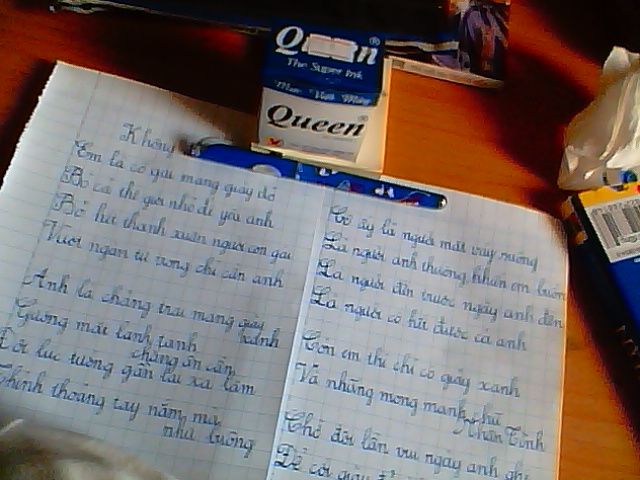 Queen
The Super Ink
Mực Viết Máy
Queen
Không
Em là cô gái mang giày đỏ
Bỏ cả thế giới nhỏ để yêu anh
Bỏ hết thanh xuân người con gái
Vượt ngàn tư vọng chỉ cần anh
Anh là chàng trai mang giày xanh
Gương mặt lãnh tanh chẳng ân cần
Đôi lúc tưởng gần lại xa lắm
Thỉnh thoảng tay nắm mà như buông
Cô ấy là người mặc váy suông
Là người anh thương, khiến em buồn
Là người đến trước ngày anh đến
Là người có hết được cả anh
Còn em thì chỉ có giày xanh
Và những mong manh chữ Chân Tình
Chờ đợi lần vui ngày anh ghé
Để cởi giày